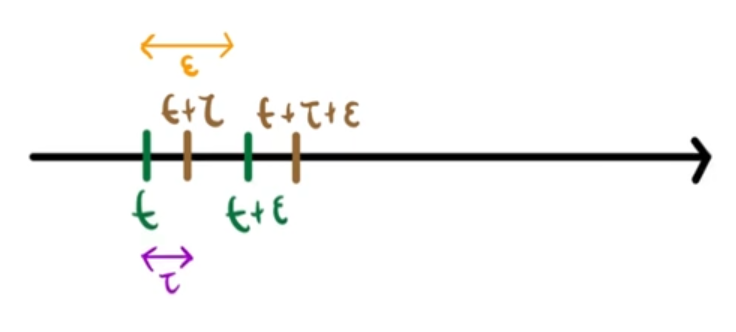 ε
t+τ t+τ+ε
t t+ε
τ